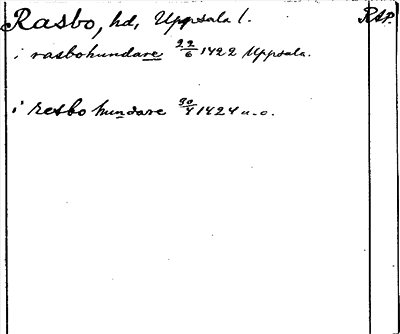 Rasbo, hd, Uppsala l. RAP.
i rasbohundare 22/6 1422 Uppsala.
i resbo hundare 30/4 1424 u.o.